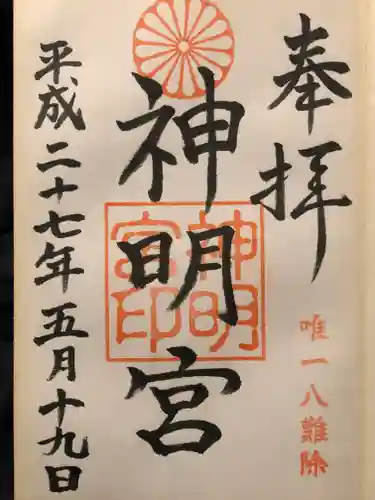 奉拝
唯一八難除
神明宮
神明宮印
平成二十七年五月十九日